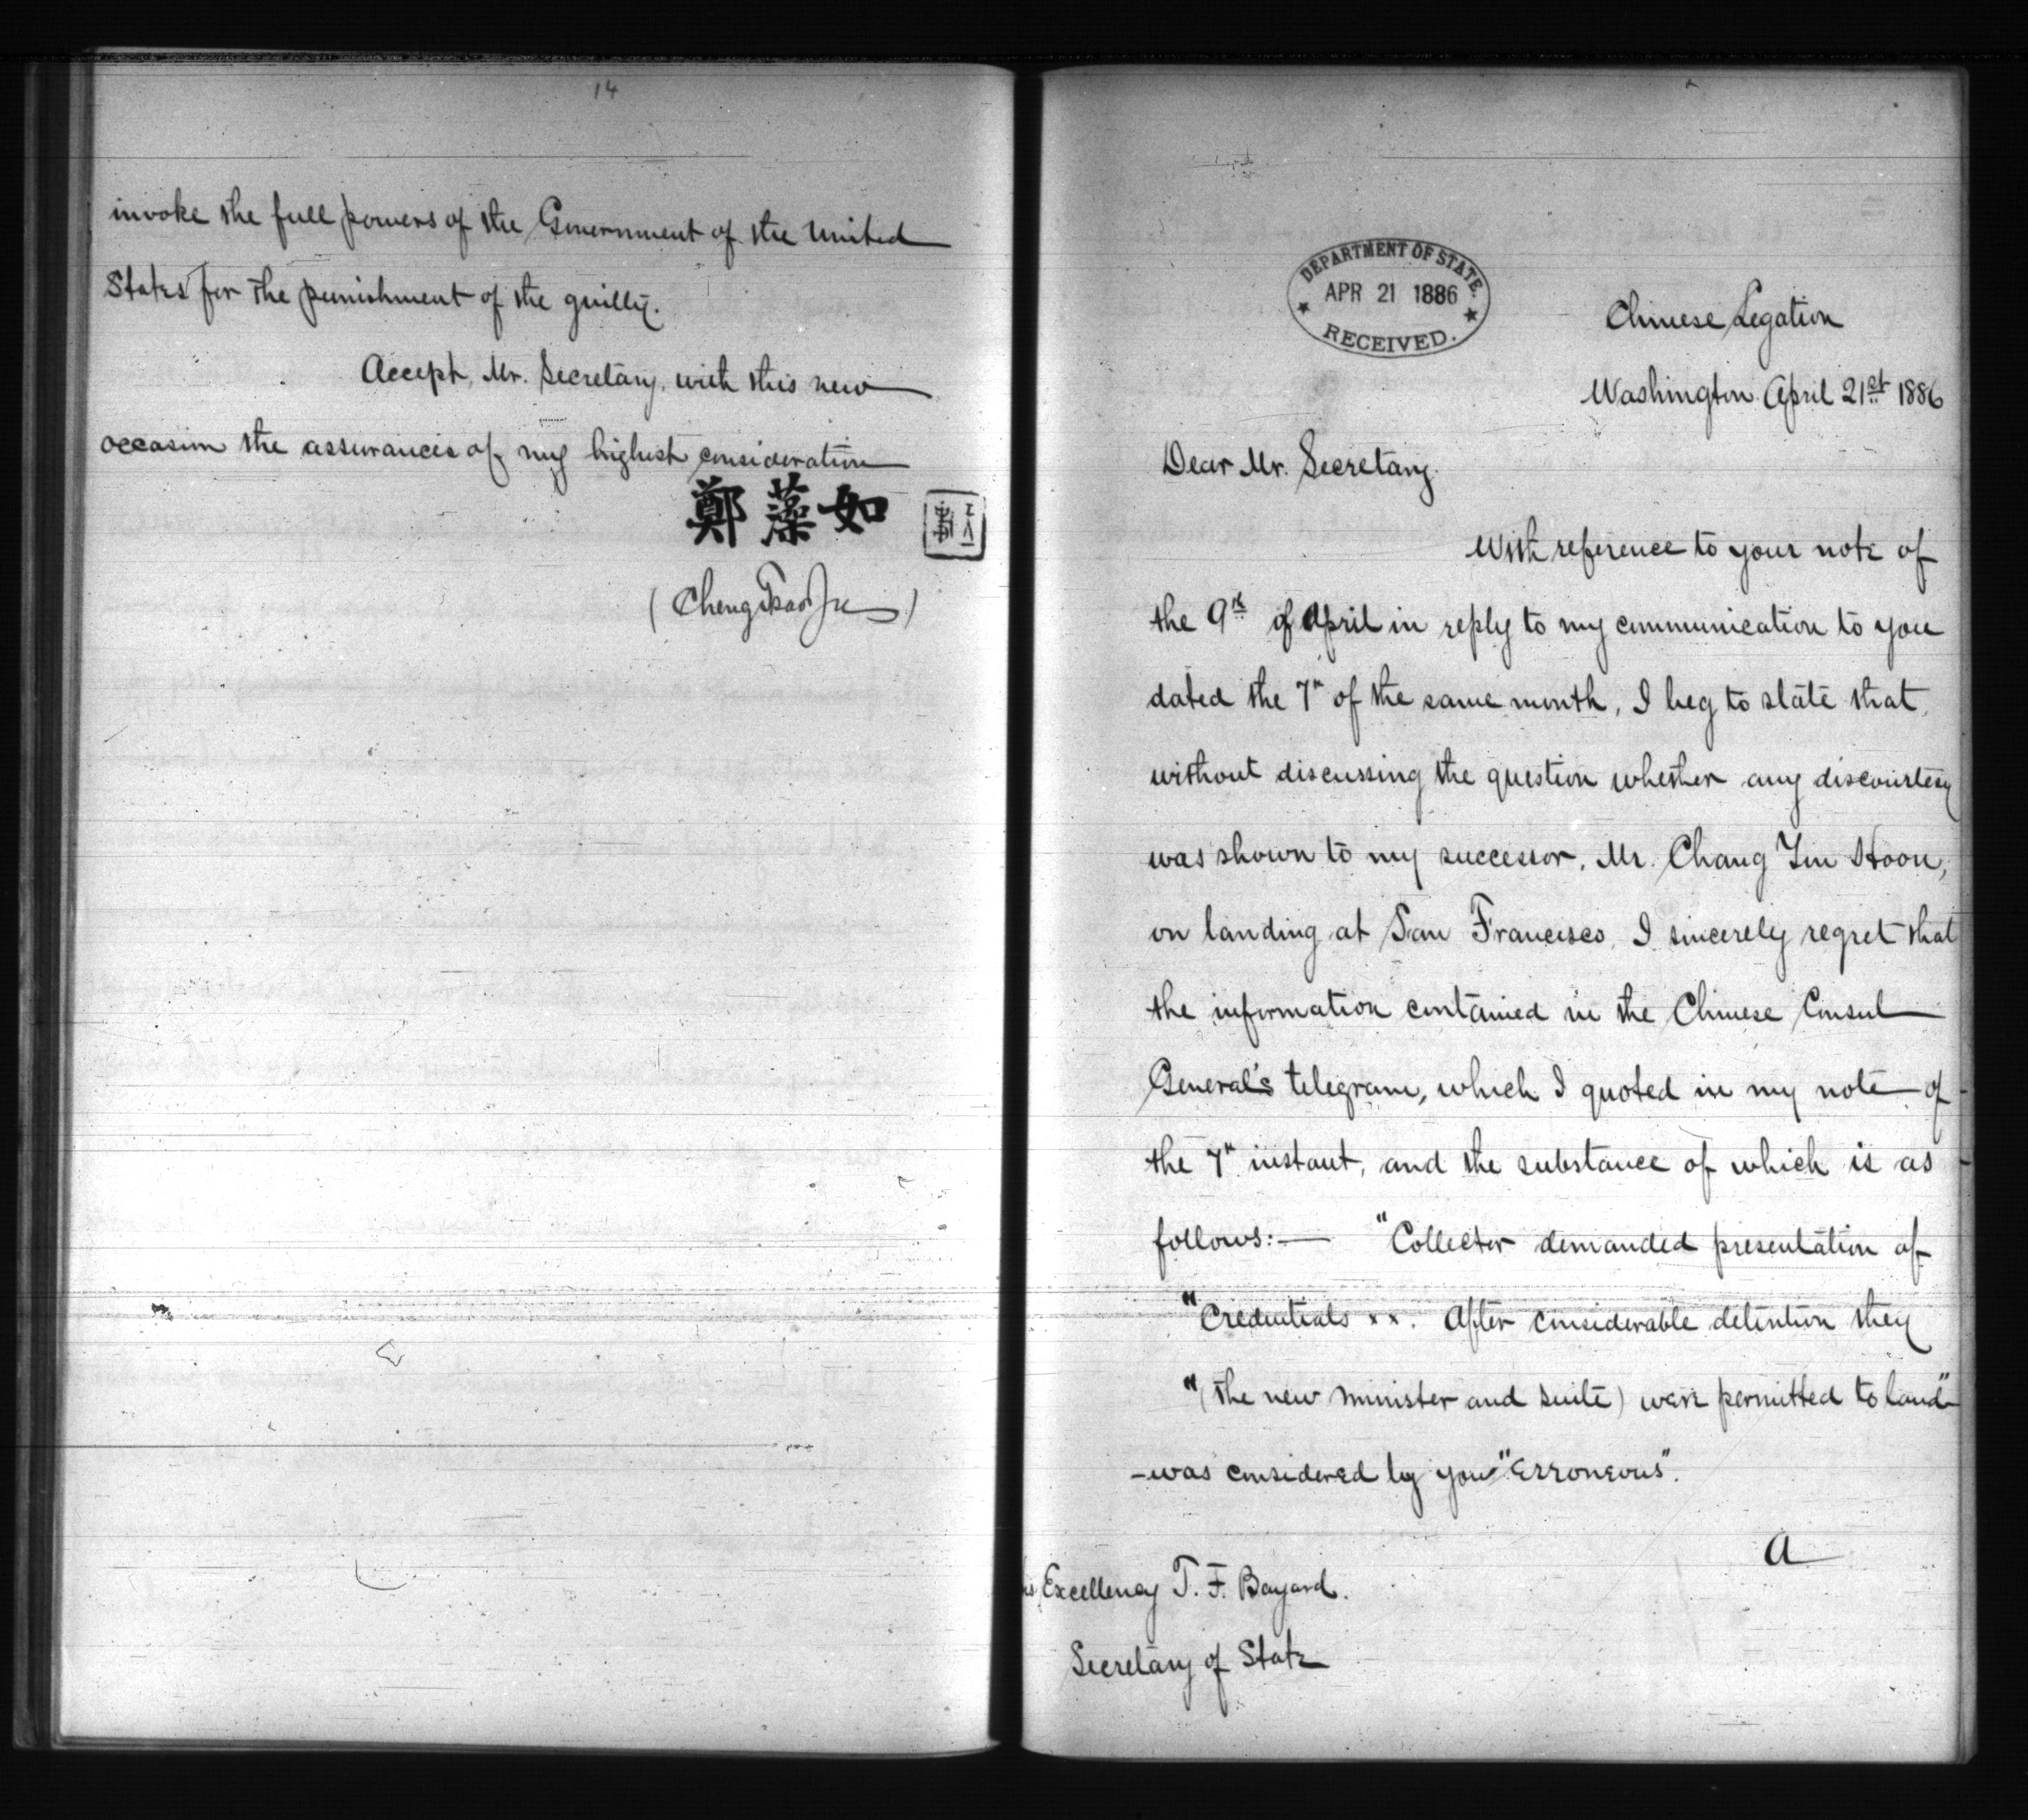 14
invoke the full powers of the Government of the United
States for the punishment of the guilty.
Accept, Mr. Secretary, with this new
occasion the assurances of my highest consideration
鄭藻如
(Cheng Tsao Ju)
DEPARTMENT OF STATE.
APR 21 1886
RECEIVED.
Chinese Legation
Washington April 21st 1886
Dear Mr. Secretary.
With reference to your note of
the 9th of April in reply to my communication to you
dated the 7th of the same month, I beg to state that,
without discussing the question whether any discourtesy
was shown to my successor, Mr. Chang Yin Hoon,
on landing at San Francisco, I sincerely regret that
the information contained in the Chinese Consul
General's telegram, which I quoted in my note of
the 7th instant, and the substance of which is as
follows:— "Collector demanded presentation of
"Credentials xx. After considerable detention they
"(the new minister and suite) were permitted to land"
-was considered by you "Erroneous".
A
Excellency T. F. Bayard.
Secretary of State